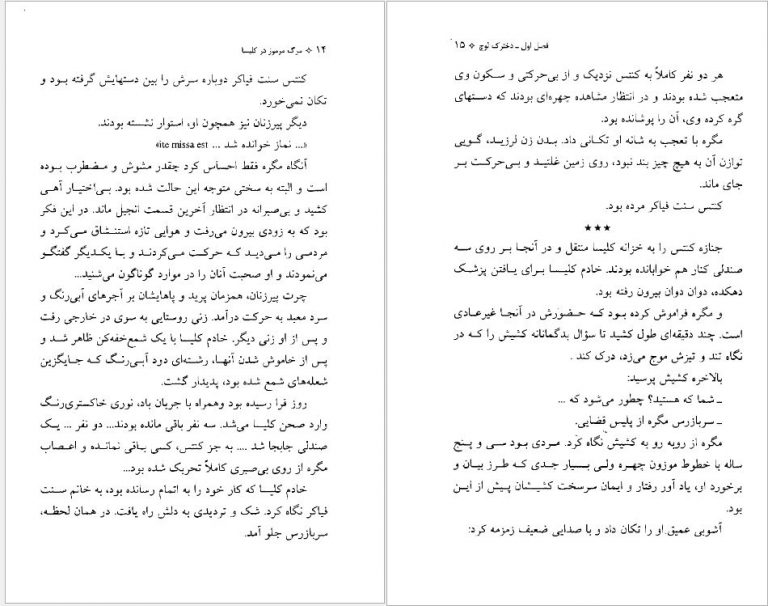 ۱۴ ❖ مرگ مرموز در کلیسا
کنتس سنت فیاکر دوباره سرش را بین دستهایش گرفته بود و
تکان نمی‌خورد.
دیگر پیرزنان نیز همچون او، استوار نشسته بودند.
«... نماز خوانده شد ... ite missa est»
آنگاه مگره فقط احساس کرد چقدر مشوش و مضطرب بوده
است و البته به سختی متوجه این حالت شده بود. بی‌اختیار آهی
کشید و بی‌صبرانه در انتظار آخرین قسمت انجیل ماند. در این فکر
بود که به زودی بیرون می‌رفت و هوایی تازه استنشاق می‌کرد و
مردمی را می‌دید که حرکت می‌کردند و با یکدیگر گفتگو
می‌نمودند و او صحبت آنان را در موارد گوناگون می‌شنید...
چرت پیرزنان، همزمان پرید و پاهایشان بر آجرهای آبی‌رنگ و
سرد معبد به حرکت درآمد. زنی روستایی به سوی در خارجی رفت
و پس از او زنی دیگر. خادم کلیسا با یک شمع‌خفه‌کن ظاهر شد و
پس از خاموش شدن آنها، رشته‌ای دود آبی‌رنگ که جایگزین
شعله‌های شمع شده بود، پدیدار گشت.
روز فرا رسیده بود وهمراه با جریان باد، نوری خاکستری‌رنگ
وارد صحن کلیسا می‌شد. سه نفر باقی مانده بودند... دو نفر ... یک
صندلی جابجا شد .... به جز کنتس، کسی باقی نمانده و اعصاب
مگره از روی بی‌صبری کاملاً تحریک شده بود...
خادم کلیسا که کار خود را به اتمام رسانده بود، به خانم سنت
فیاکر نگاه کرد. شک و تردیدی به دلش راه یافت. در همان لحظه،
سربازرس جلو آمد.
فصل اول ـ دخترک لوچ ❖ ۱۵
هر دو نفر کاملاً به کنتس نزدیک و از بی‌حرکتی و سکون وی
متعجب شده بودند و در انتظار مشاهده چهره‌ای بودند که دستهای
گره کرده وی، آن را پوشانده بود.
مگره با تعجب به شانه او تکانی داد. بدن زن لرزید، گویی
توازن آن به هیچ چیز بند نبود، روی زمین غلتید و بی‌حرکت بر
جای ماند.
کنتس سنت فیاکر مرده بود.
★★★
جنازه کنتس را به خزانه کلیسا منتقل و در آنجا بر روی سه
صندلی کنار هم خوابانده بودند. خادم کلیسا برای یافتن پزشک
دهکده، دوان دوان بیرون رفته بود.
و مگره فراموش کرده بود که حضورش در آنجا غیرعادی
است. چند دقیقه‌ای طول کشید تا سؤال بدگمانانه کشیش را که در
نگاه تند و تیزش موج می‌زد، درک کند .
بالاخره کشیش پرسید:
ـ شما که هستید؟ چطور می‌شود که ...
ـ سربازرس مگره از پلیس قضایی.
مگره از روبه رو به کشیش نگاه کرد. مردی بود سی و پنج
ساله با خطوط موزون چهره ولی بسیار جدی که طرز بیان و
برخورد او، یاد آور رفتار و ایمان سرسخت کشیشان پیش از این
بود.
آشوبی عمیق او را تکان داد و با صدایی ضعیف زمزمه کرد: